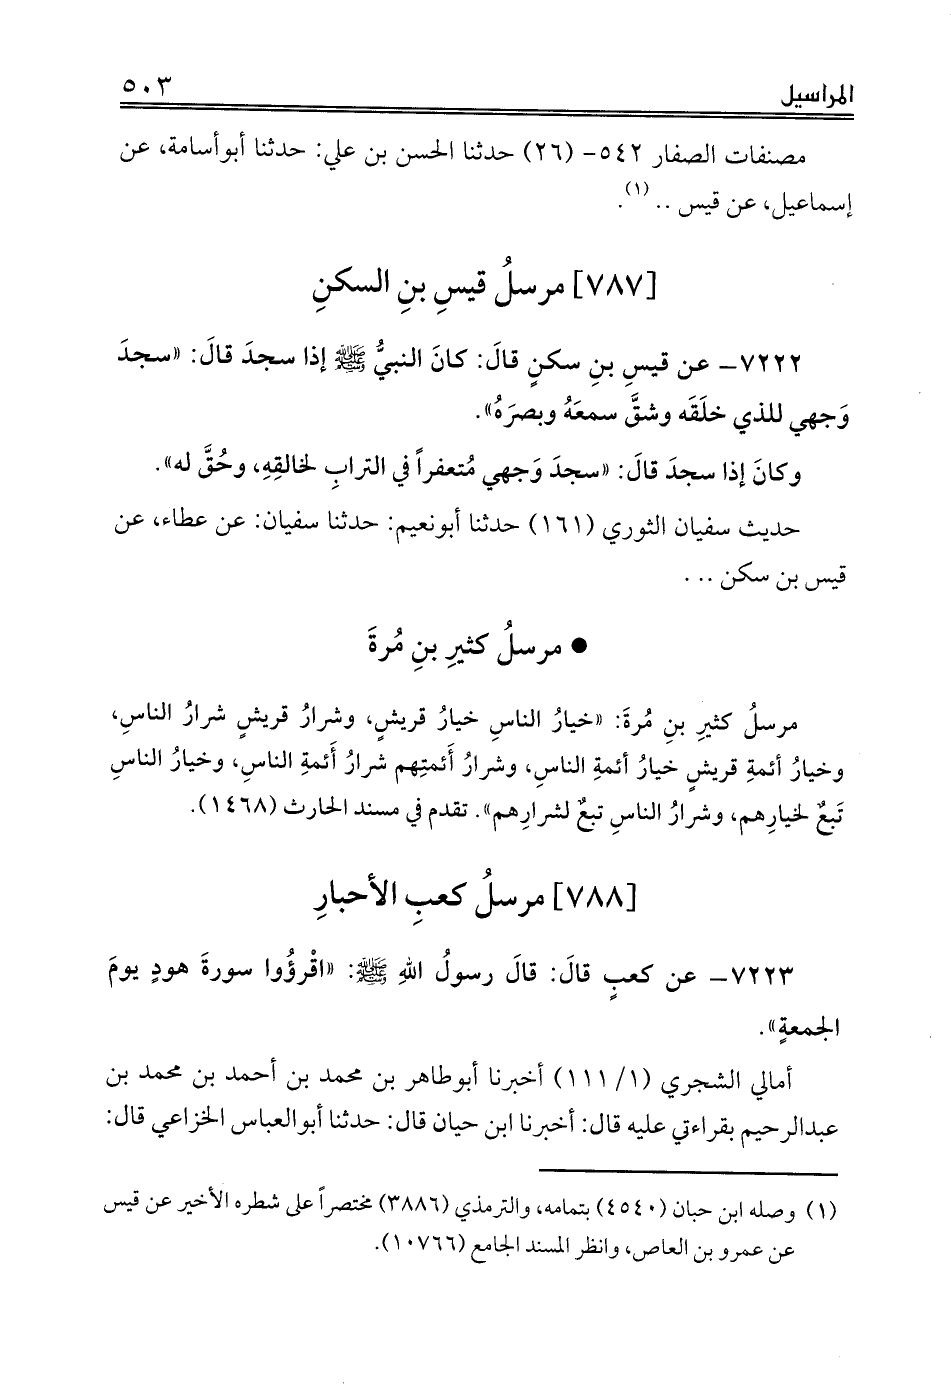 المراسيل ٥٠٣
مصنفات الصفار ٥٤٢- (٢٦) حدثنا الحسن بن علي: حدثنا أبوأسامة، عن
إسماعيل، عن قيس .. (١).
[٧٨٧] مرسلُ قيسِ بنِ السكنِ
٧٢٢٢- عن قيسِ بنِ سكنٍ قالَ: كانَ النبيُّ ﷺ إذا سجدَ قالَ: «سجدَ
وَجهي للذي خلَقَه وشقَّ سمعَهُ وبصرَهُ».
وكانَ إذا سجدَ قالَ: «سجدَ وَجهي مُتعفراً في الترابِ لخالقِهِ، وحُقَّ له».
حديث سفيان الثوري (١٦١) حدثنا أبونعيم: حدثنا سفيان: عن عطاء، عن
قيس بن سكن ...
● مرسلُ كثيرِ بنِ مُرةَ
مرسلُ كثيرِ بنِ مُرةَ: «خيارُ الناسِ خيارُ قريشٍ، وشرارُ قريشٍ شرارُ الناسِ،
وخيارُ أئمةِ قريشٍ خيارُ أئمةِ الناسِ، وشرارُ أَئمتِهم شرارُ أَئمةِ الناسِ، وخيارُ الناسِ
تَبعٌ لخيارِهم، وشرارُ الناسِ تبعٌ لشرارِهم». تقدم في مسند الحارث (١٤٦٨).
[٧٨٨] مرسلُ كعبِ الأحبارِ
٧٢٢٣- عن كعبٍ قالَ: قالَ رسولُ اللهِ ﷺ: «اقْرؤُوا سورةَ هودٍ يومَ
الجمعةِ».
أمالي الشجري (١/ ١١١) أخبرنا أبوطاهر بن محمد بن أحمد بن محمد بن
عبدالرحيم بقراءتي عليه قال: أخبرنا ابن حيان قال: حدثنا أبوالعباس الخزاعي قال:
(١) وصله ابن حبان (٤٥٤٠) بتمامه، والترمذي (٣٨٨٦) مختصراً على شطره الأخير عن قيس
عن عمرو بن العاص، وانظر المسند الجامع (١٠٧٦٦).